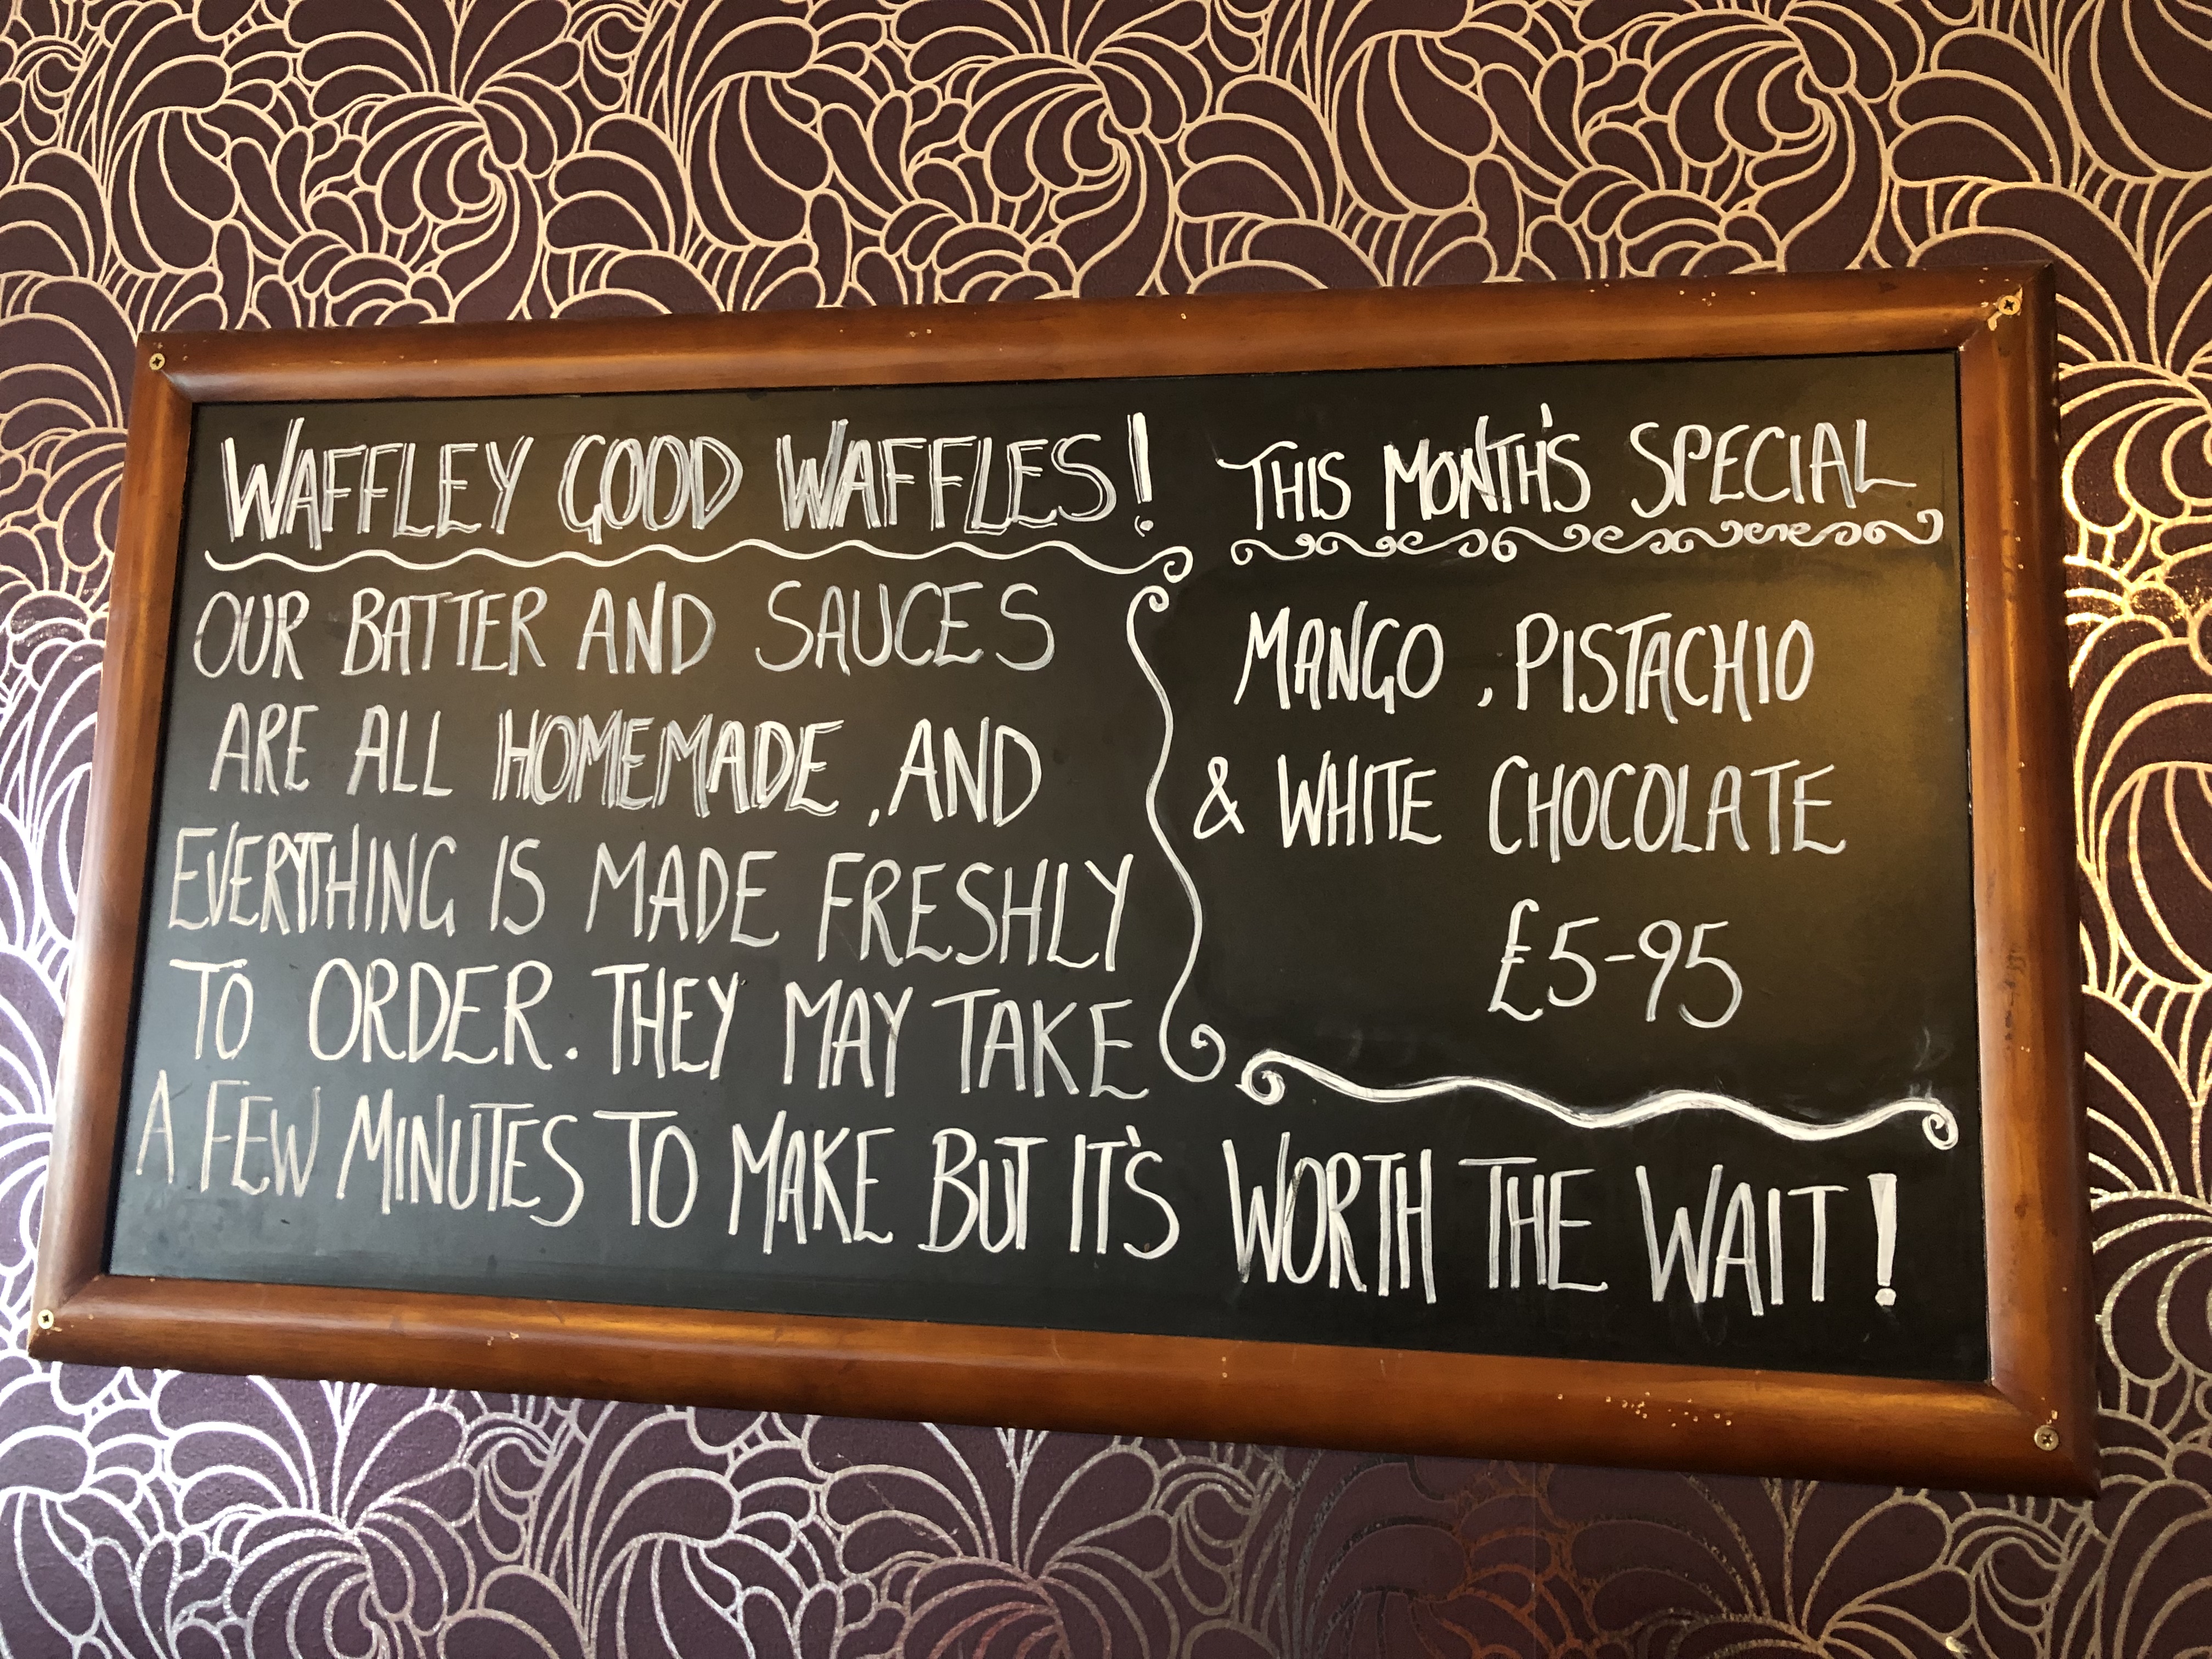 WAFFLEY GOOD WAFFLES!
OUR BATTER AND SAUCES
ARE ALL HOMEMADE, AND
EVERYTHING IS MADE FRESHLY
TO ORDER. THEY MAY TAKE
A FEW MINUTES TO MAKE BUT IT'S WORTH THE WAIT!
THIS MONTH'S SPECIAL
MANGO, PISTACHIO
& WHITE CHOCOLATE
£5-95